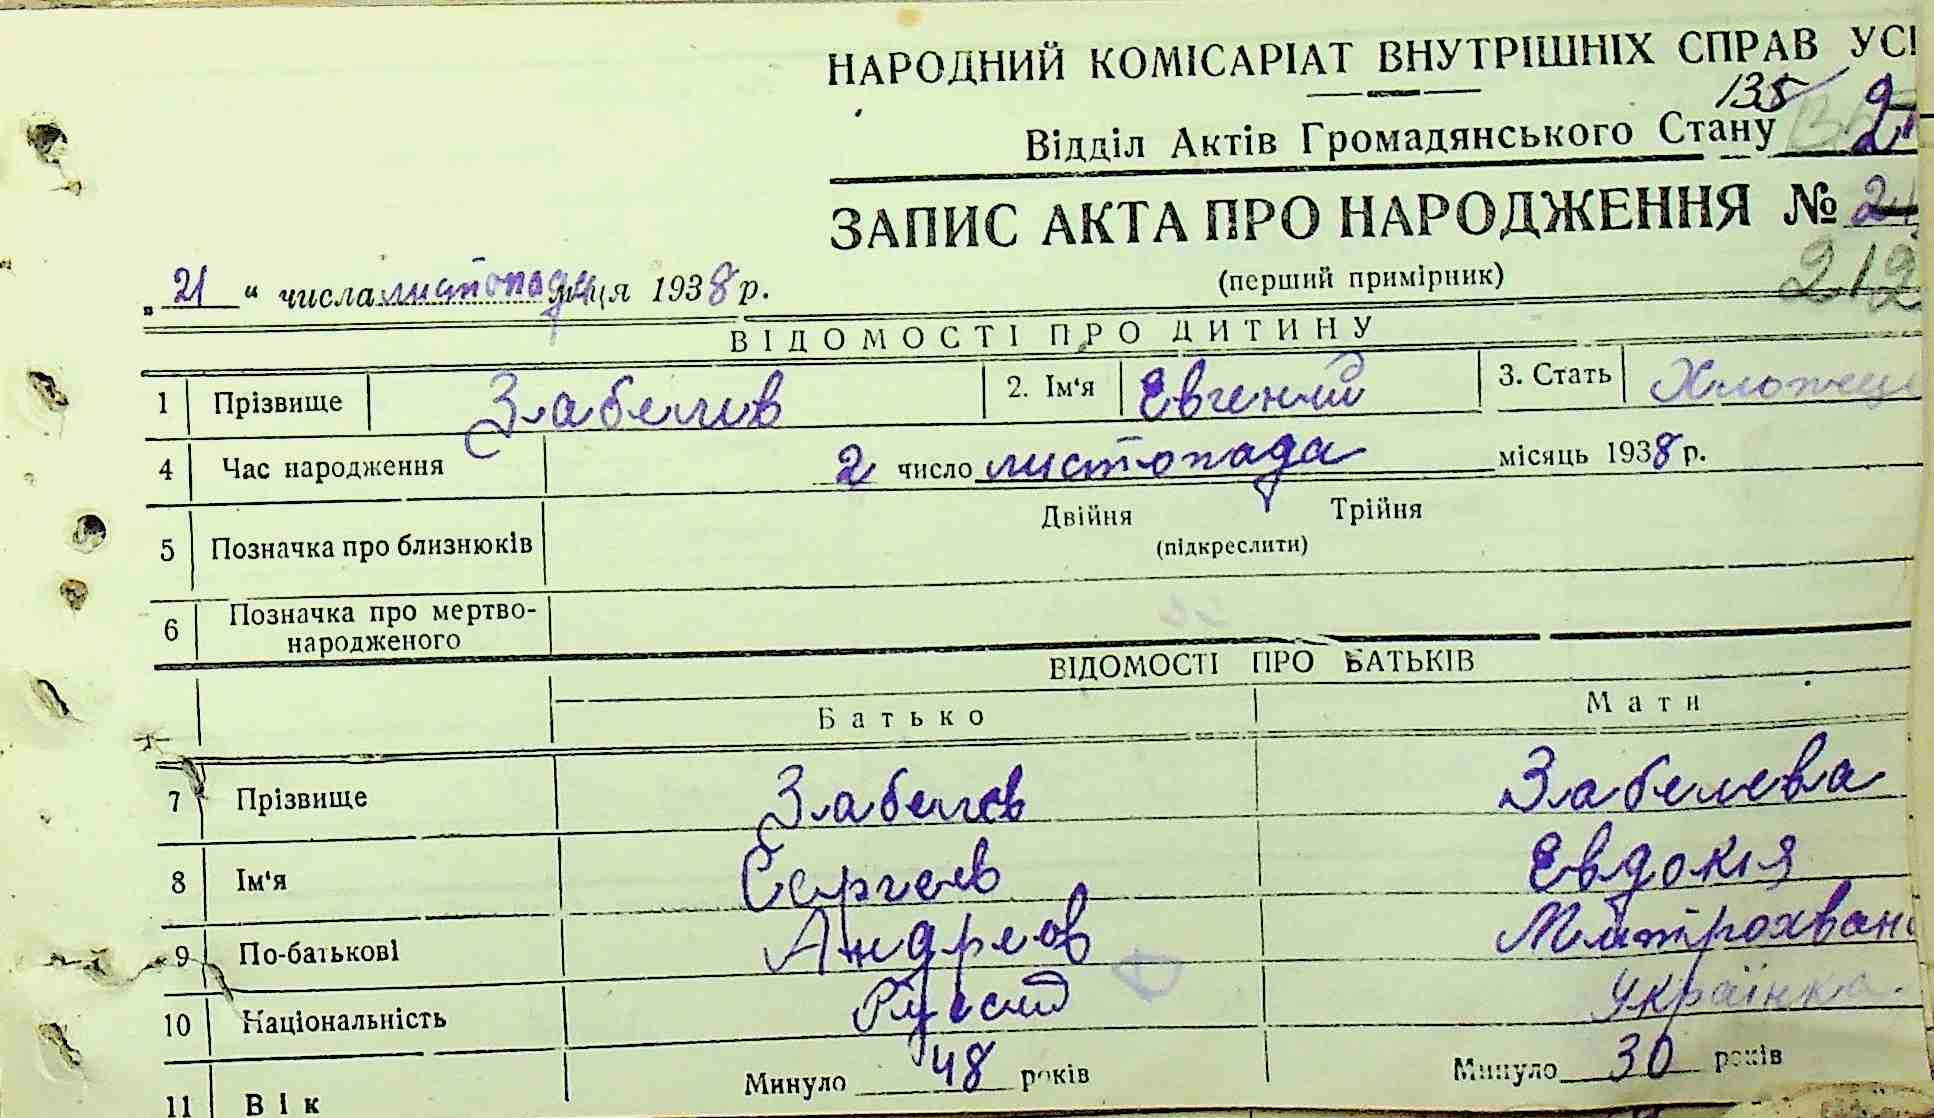 НАРОДНИЙ КОМІСАРІАТ ВНУТРІШНІХ СПРАВ УСІ
135
Відділ Актів Громадянського Стану
ЗАПИС АКТА ПРО НАРОДЖЕННЯ №
(перший примірник)
212
„21“ числа листопада м-ця 1938 р.
ВІДОМОСТІ ПРО ДИТИНУ
1 Прізвище Забелив 2. Ім'я Евгений 3. Стать Хлопець
4 Час народження 2 число листопада місяць 1938 р.
5 Позначка про близнюків Двійня Трійня
(підкреслити)
6 Позначка про мертво-
народженого
ВІДОМОСТІ ПРО БАТЬКІВ
Батько Мати
7 Прізвище Забелев Забелева
8 Ім'я Сергеев Евдокія
9 По-батькові Андреев Митрохван
10 Національність Русский Українка.
11 Вік Минуло 48 років Минуло 30 років